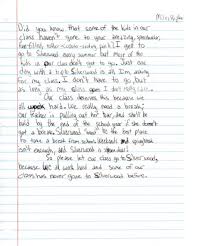 Did you know that some of the kids in our
class haven't gone to your amazing, spectacular,
fun-filled, roller-coaster park? I get to
go to Silverwood every summer but many of the
kids in our class don't get to go. Just one
day with a trip to Silverwood is all I'm asking
for my class. I don't have to go, but
as long as my class goes I don't really care.
Our class deserves this because we
all work hard. We really need a break;
our teacher is pulling out her hair, and she'll be
bald by the end of the school year if she doesn't
get a break. Silverwood would be the best place
to take a break from school. Weekends and
isn't enough, and Silverwood is
So please let our class go to Silverwood,
because we all work hard and some of our
class has never gone to Silverwood before.